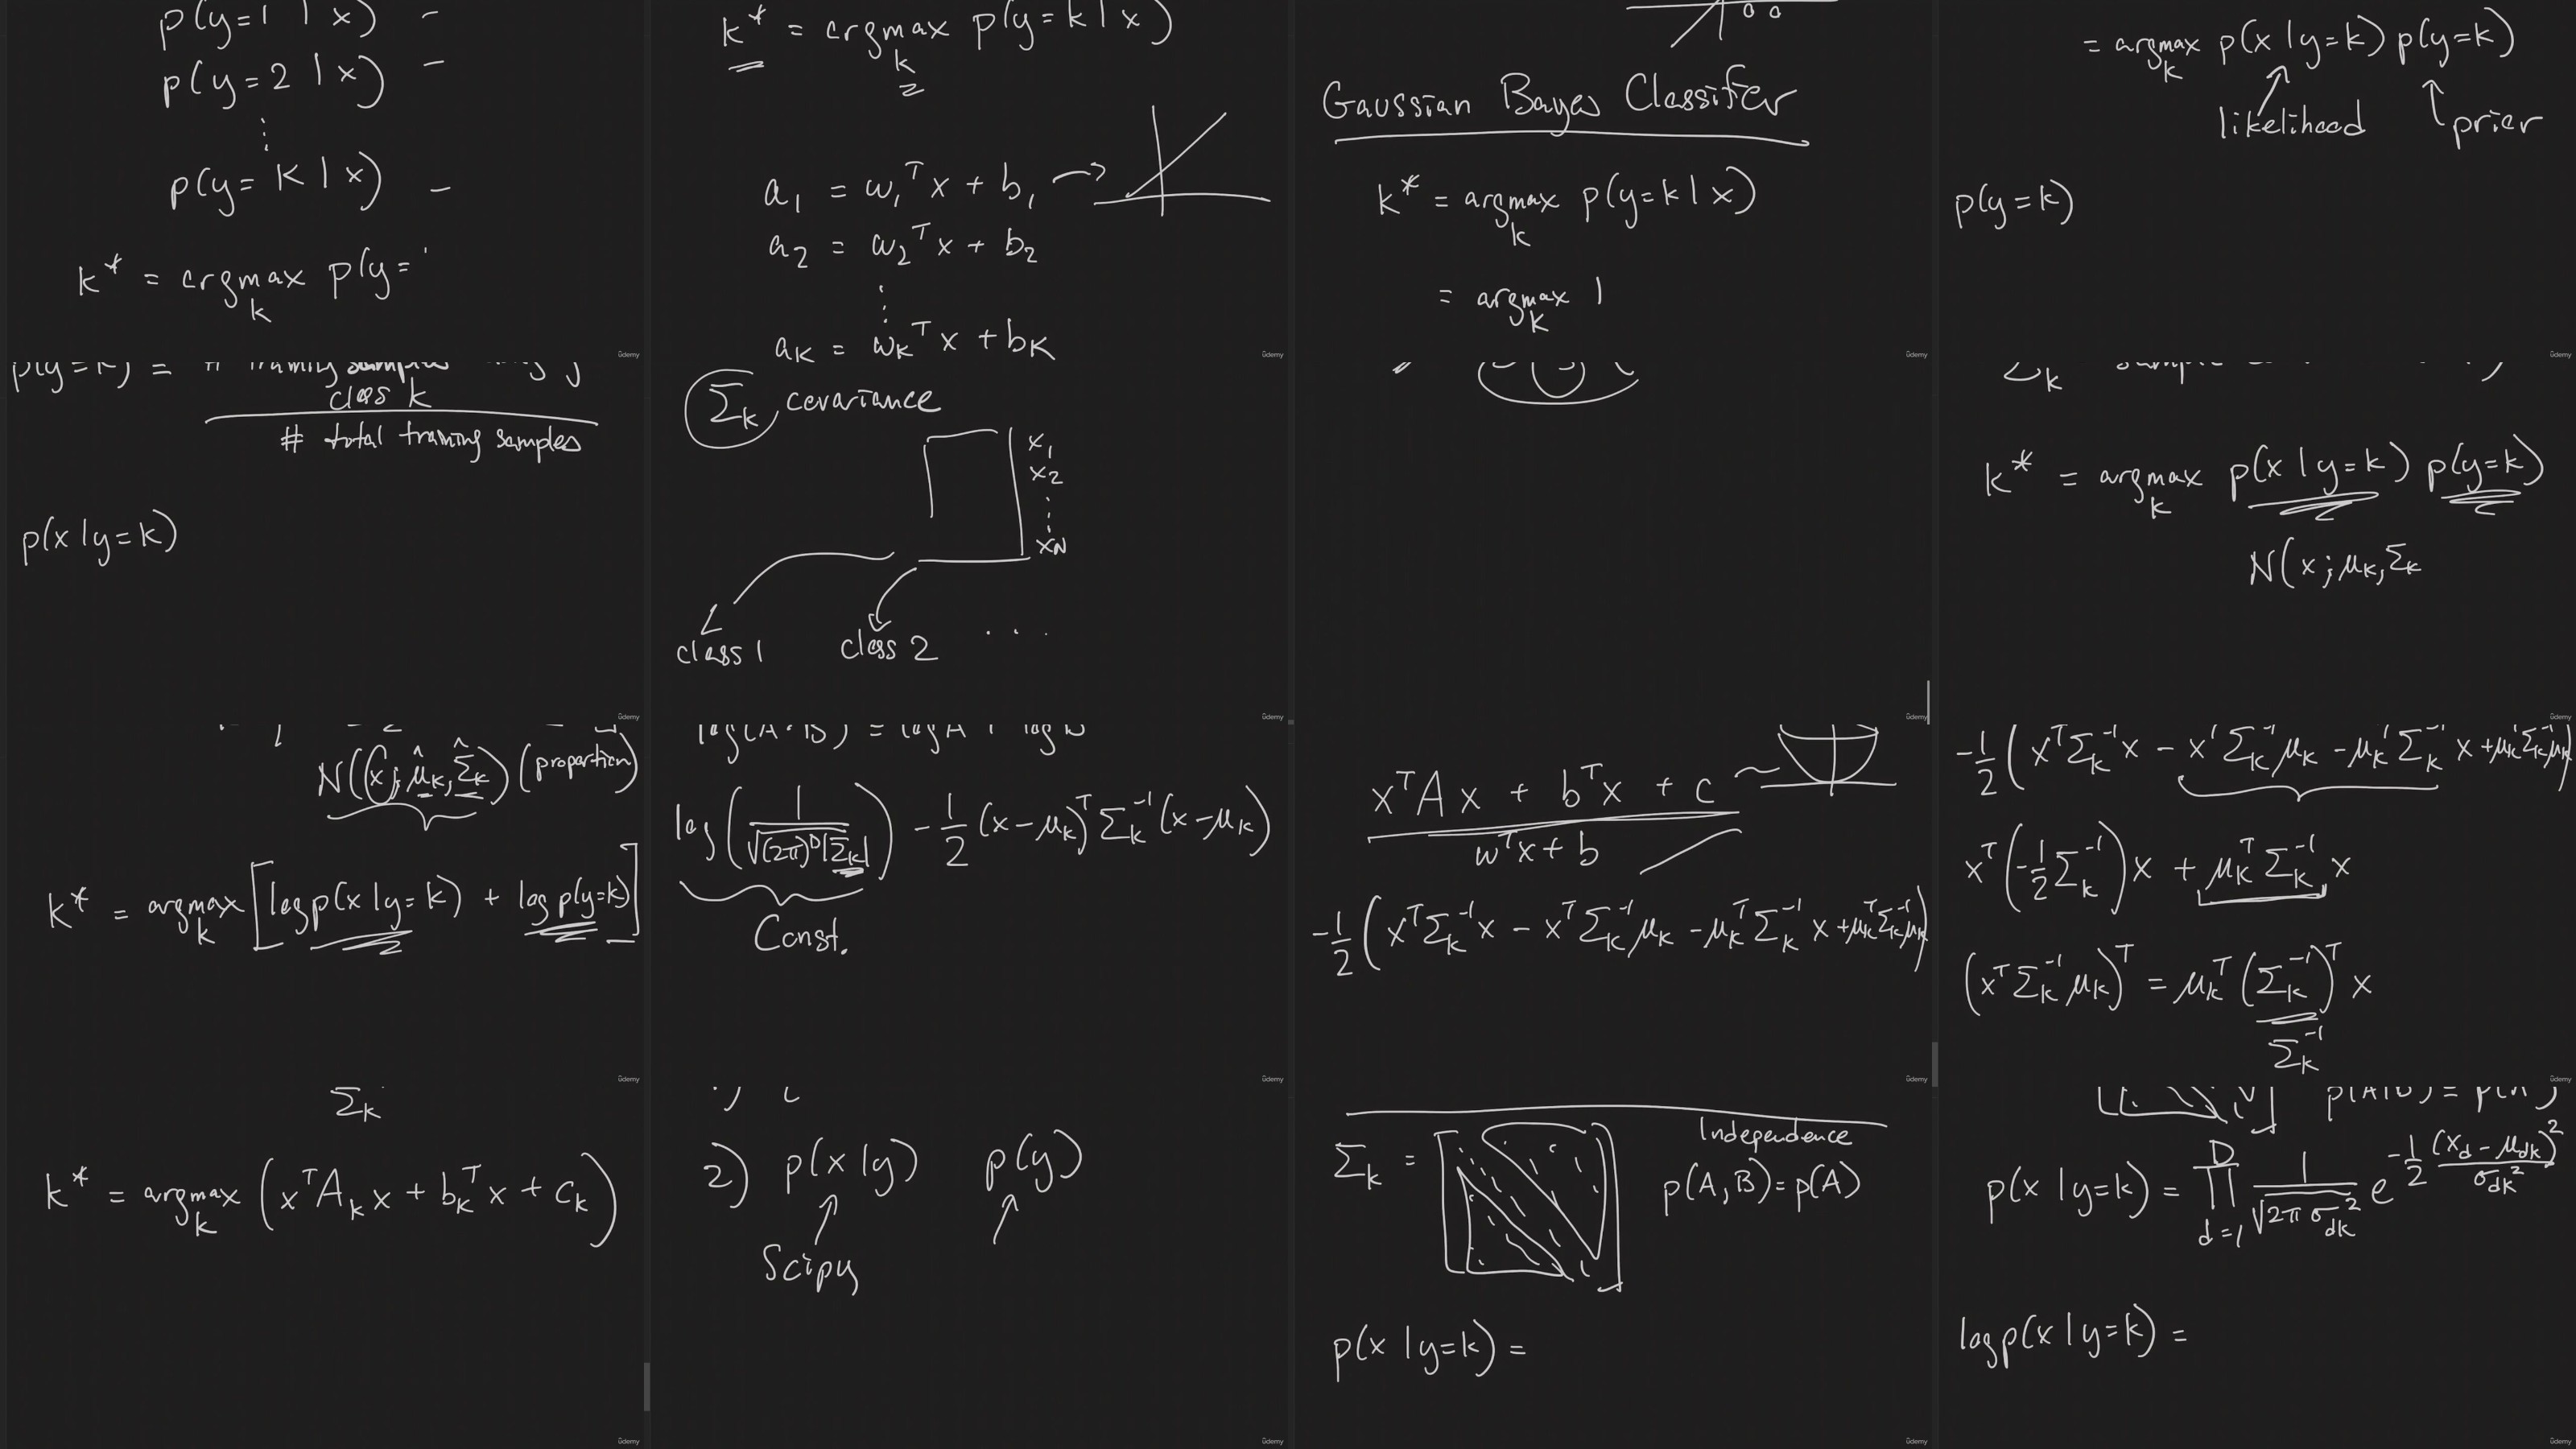 p(y=1 | x) –
p(y=2 | x) –
⋮
p(y=K | x) –
k* = argmax p(y='
k
ûdemy
k* = argmax p(y=k | x)
k
a₁ = w₁ᵀx + b₁
a₂ = w₂ᵀx + b₂
⋮
a_K = w_Kᵀx + b_K
ûdemy
Gaussian Bayes Classifer
k* = argmax p(y=k | x)
k
= argmax |
k
ûdemy
= argmax p(x | y=k) p(y=k)
k
likelihood
prior
p(y=k)
ûdemy
p(y=k) = # training samples
class k
# total training samples
p(x | y=k)
ûdemy
Σ_k covariance
x₁
x₂
⋮
x_N
class 1 class 2 . . .
ûdemy
ûdemy
Σ_k sample
k* = argmax p(x | y=k) p(y=k)
k
N(x; μ_k, Σ_k
ûdemy
N(x; μ̂_k, Σ̂_k) (proportion)
k* = argmax [log p(x | y=k) + log p(y=k)]
k
ûdemy
log(A·B) = log A + log B
log(1/√((2π)ᴰ|Σ_k|)) – 1/2 (x–μ_k)ᵀ Σ_k⁻¹ (x–μ_k)
Const.
ûdemy
xᵀAx + bᵀx + c
wᵀx + b
–1/2 (xᵀΣ_k⁻¹x – xᵀΣ_k⁻¹μ_k – μ_kᵀΣ_k⁻¹x + μ_kᵀΣ_k⁻¹μ_k)
ûdemy
–1/2 (xᵀΣ_k⁻¹x – xᵀΣ_k⁻¹μ_k – μ_kᵀΣ_k⁻¹x + μ_kᵀΣ_k⁻¹μ_k)
xᵀ(–1/2 Σ_k⁻¹)x + μ_kᵀΣ_k⁻¹x
(xᵀΣ_k⁻¹μ_k)ᵀ = μ_kᵀ(Σ_k⁻¹)ᵀx
Σ_k⁻¹
ûdemy
Σ_k
k* = argmax (xᵀA_kx + b_kᵀx + c_k)
k
ûdemy
2) p(x | y) p(y)
Scipy
ûdemy
Independence
Σ_k = p(A, B) = p(A)
p(x | y=k) =
ûdemy
p(A|B) = p(A)
p(x | y=k) = ∏_{d=1}^{D} 1/√(2πσ_dk²) e^(–1/2 (x_d – μ_dk)²/σ_dk²)
log p(x | y=k) =
ûdemy